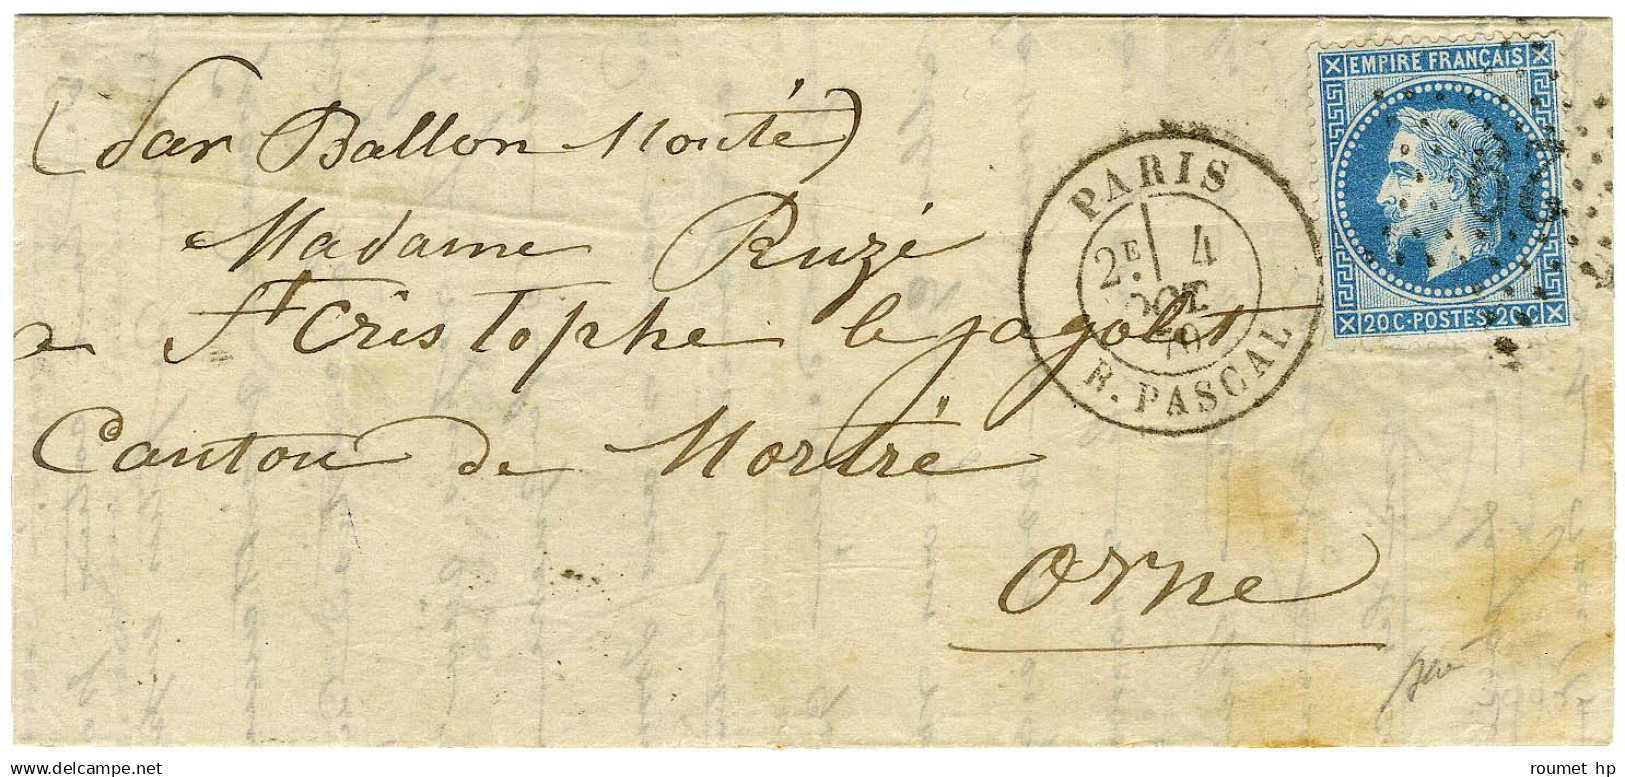 (par Ballon Monté)
Madame Ruzé
a St Cristophe le jajolet
Canton de Mortré
Orne
PARIS
2E 4
OCT
70
R. PASCAL
EMPIRE FRANÇAIS
20C-POSTES-20C
roumet hp